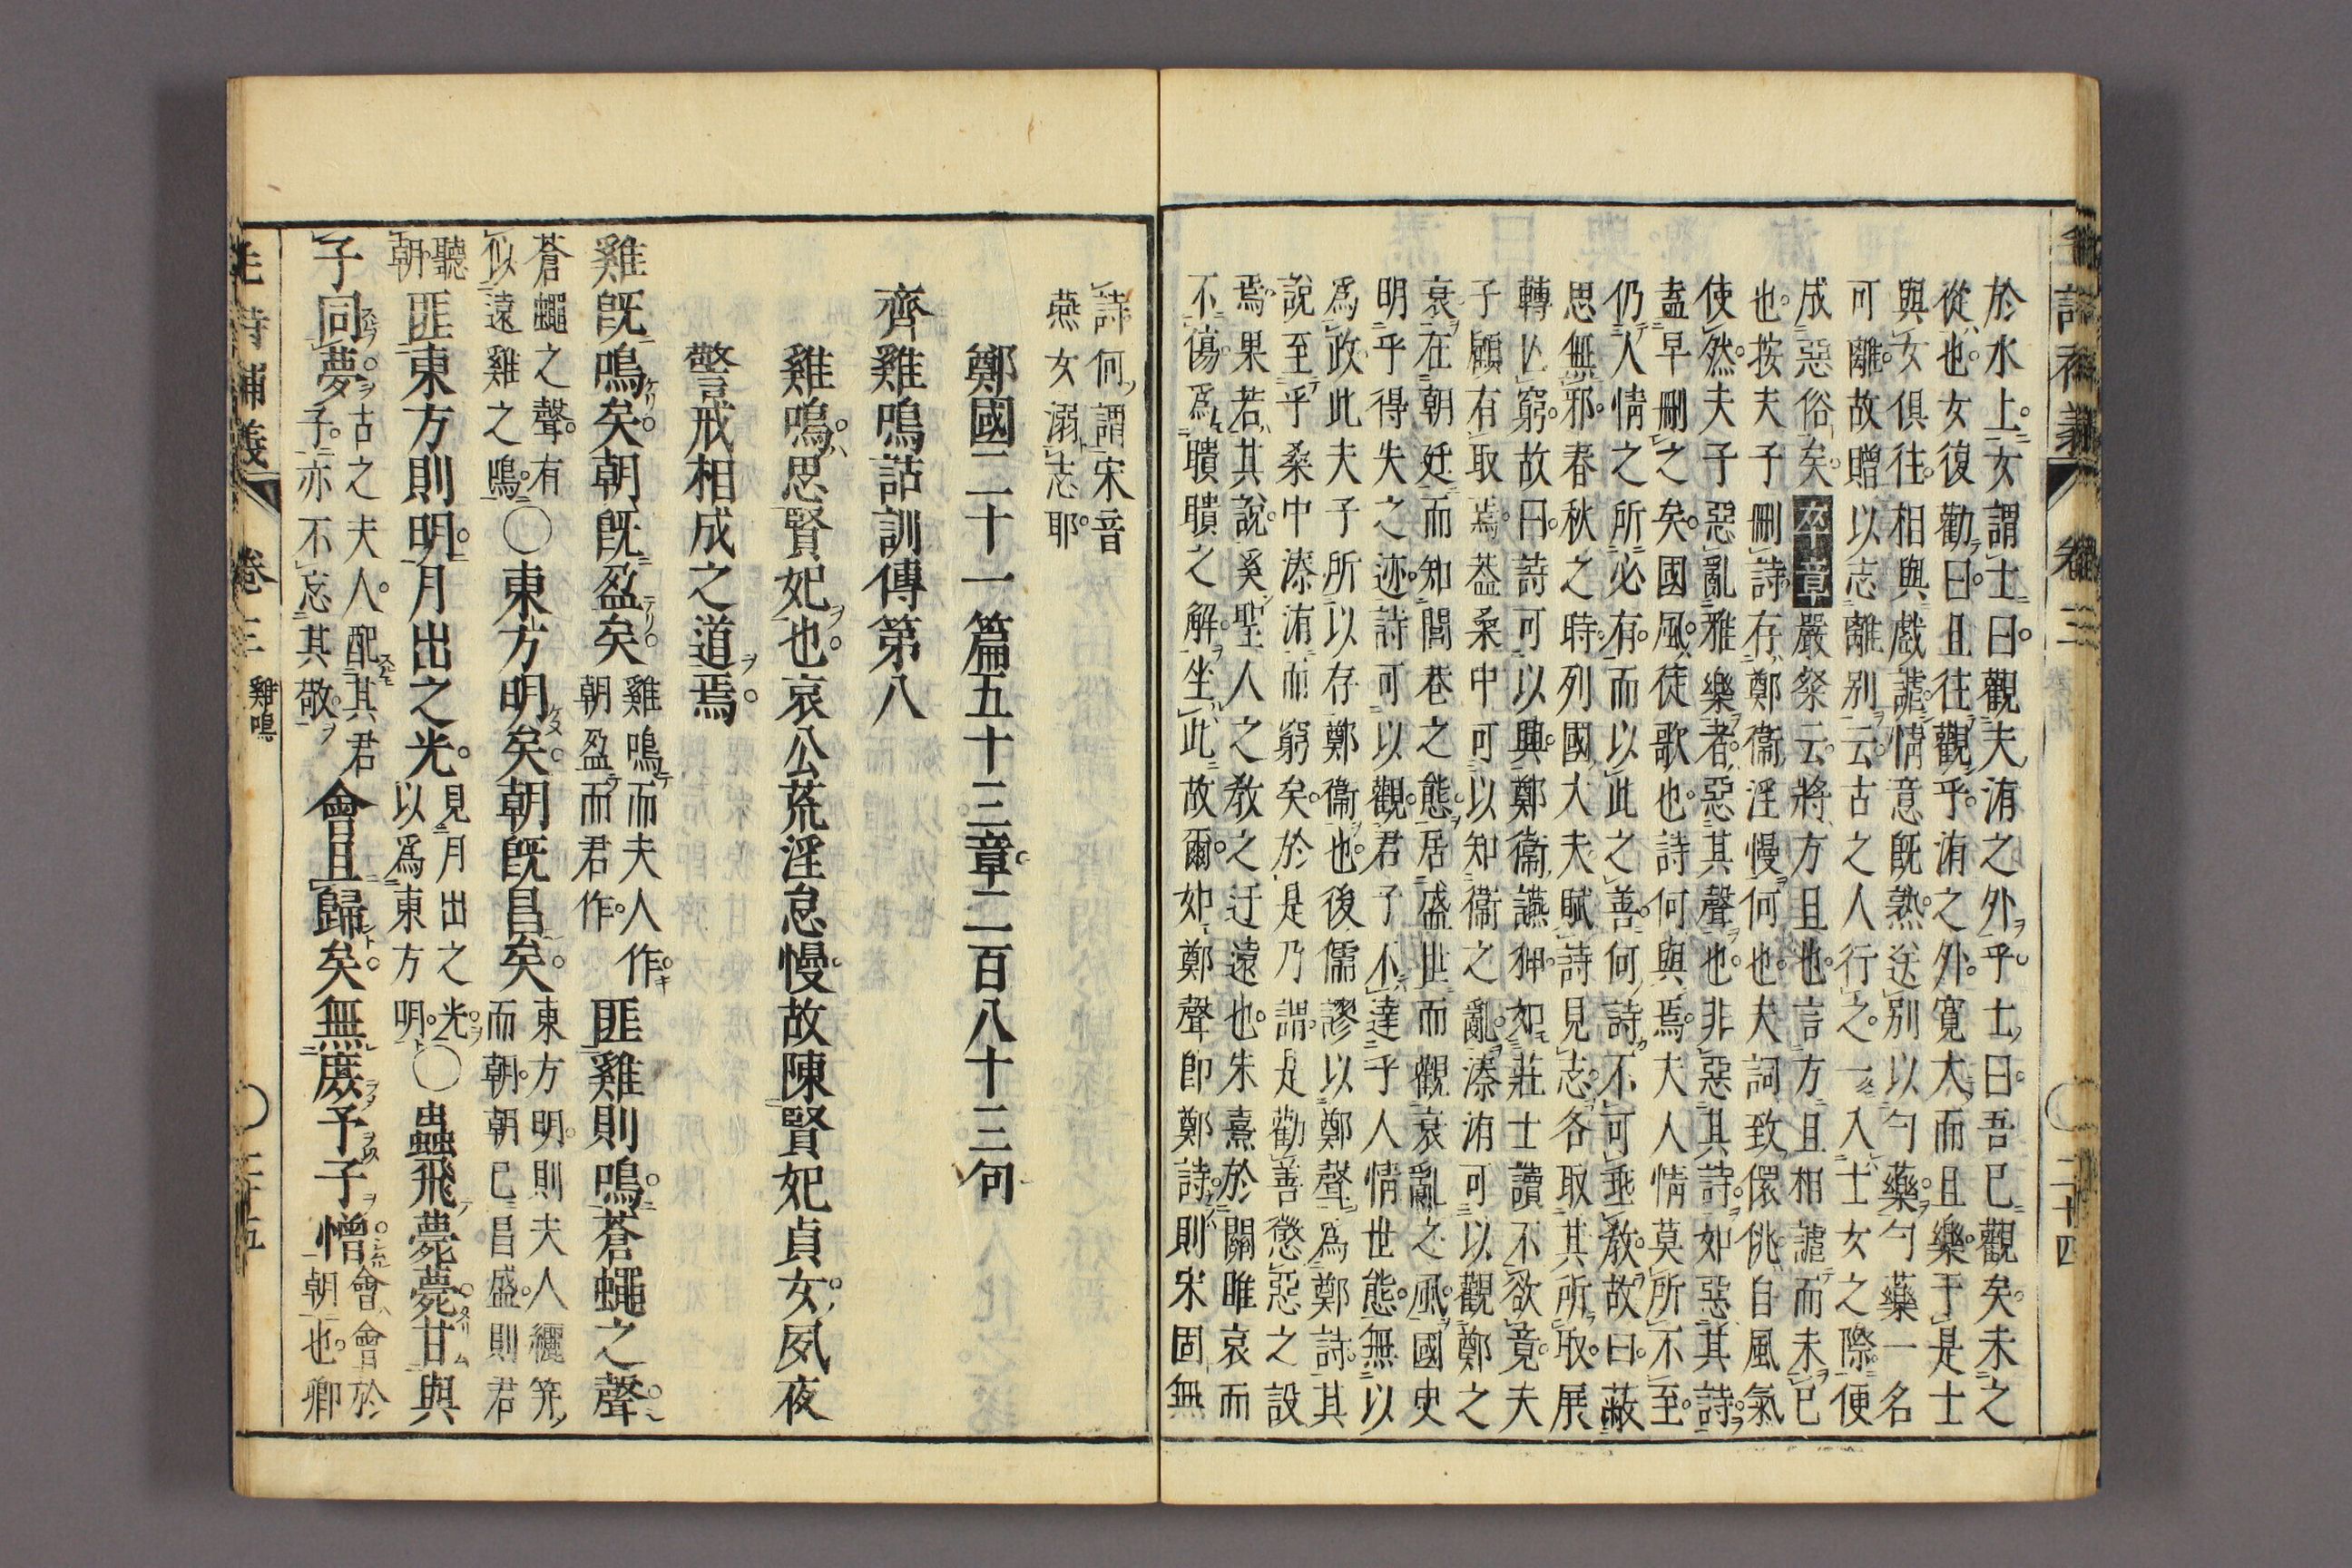 於水上女謂士曰觀夫洧之外乎士曰吾已觀矣未之
從也女復勸曰且往觀乎洧之外寬大而且樂于是士
與女俱往相與戲謔情意既熟送別以勺藥勺藥一名
可離故贈以志離別云古之人行之一入士女之際便
成惡俗矣 卒章 嚴粲云將方且也言方且相謔而未已
也按夫子刪詩存鄭衞淫慢何也夫詞致儇佻自風氣
使然夫子惡亂雅樂者惡其聲也非惡其詩如惡其詩
盍早刪之矣國風徒歌也詩何與焉夫人情莫所不至
仍人情之所必有而以此之善何詩不可垂教故曰蔽
思無邪春秋之時列國大夫賦詩見志各取其所取展
轉亾窮故曰詩可以興鄭衞讌狎如莊士讀不欲竟夫
子顧有取焉葢桑中可以知衞之亂溱洧可以觀鄭之
衰在朝廷而知閭巷之態居盛世而觀衰亂之風國史
明乎得失之迹詩可以觀君子不達乎人情世態無以
爲政此夫子所以存鄭衞也後儒謬以鄭聲爲鄭詩其
說至乎桑中溱洧而窮矣於是乃謂是勸善懲惡之設
焉果若其說奚聖人之敎之迂遠也朱熹於關雎哀而
不傷爲瞶瞶之解坐此故爾如鄭聲卽鄭詩則宋固無
詩何謂宋音
燕女溺志耶
鄭國二十一篇五十三章二百八十三句
齊雞鳴詁訓傳第八
雞鳴思賢妃也哀公荒淫怠慢故陳賢妃貞女夙夜
警戒相成之道焉
雞既鳴矣朝既盈矣 雞鳴而夫人作朝盈而君作 匪雞則鳴蒼蠅之聲
蒼蠅之聲有似遠雞之鳴 ○東方明矣朝既昌矣 東方明則夫人纚笄而朝朝已昌盛則君
聽朝 匪東方則明月出之光 見月出之光以爲東方明 ○蟲飛薨薨甘與
子同夢 古之夫人配其君子亦不忘其敬 會且歸矣無庶予子憎 會會於朝也卿
毛詩補義 卷三 二十四
毛詩補義 卷三 雞鳴 二十五